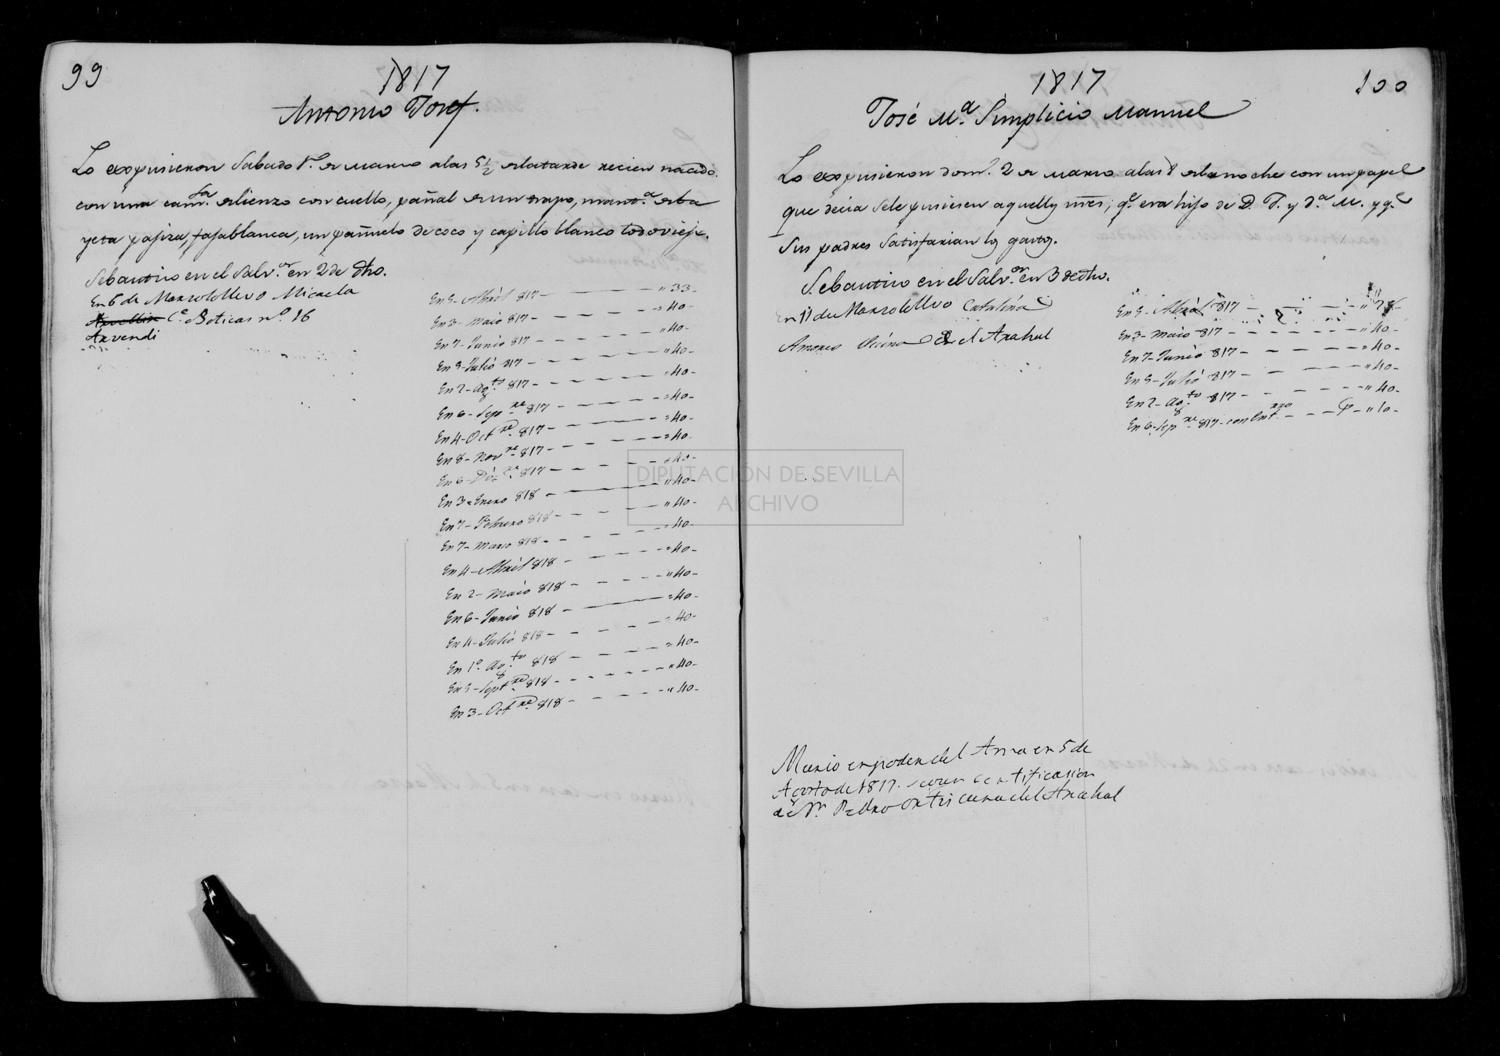 99
1817
Antonio Josef.
Lo expusieron Sabado 1º. de Marzo alas 5½ dela tarde recien nacido
con una cam.sa de lienzo con cuello, pañal de un trapo, mant.a de ba
yeta pajiza, faja blanca, un pañuelo de coco y capillo blanco todo viejo.
Se bautizo en el Salv.or en 2 de dho.
En 6 de Marzo lo llevo Micaela
C.e Boticas nº. 16
Arvendi
En 5 - Abril 817 - " 33 -
En 3 - Maio 817 - " 40 -
En 7 - Junio 817 - " 40 -
En 5 - Julio 817 - " 40 -
En 2 - Ag.to 817 - " 40 -
En 6 - Sep.re 817 - " 40 -
En 4 - Oct.re 817 - " 40 -
En 8 - Nov.re 817 - " 40 -
En 6 - Diz.re 817 - " 40 -
En 3 - Enero 818 - " 40 -
En 7 - Febrero 818 - " 40 -
En 7 - Marzo 818 - " 40 -
En 4 - Abril 818 - " 40 -
En 2 - Maio 818 - " 40 -
En 6 - Junio 818 - " 40 -
En 4 - Julio 818 - " 40 -
En 1º. Ag.to 818 - " 40 -
En 5 - Sept.re 818 - " 40 -
En 3 - Oct.re 818 - " 40 -
1817
100
José M.a Simplicio Manuel
Lo expusieron dom.º 2 de Marzo alas 8 dela noche con un papel
que decia se le pusiesen aquellos nres, q.e era hijo de D. J. y d.a M. y q.e
sus padres satisfarian los gastos.
Se bautizo en el Salv.or en 3 de dho.
En 11 de Marzo lo llevo Catalina
Amores en el Arahal
En 5 - Abril 817 -
En 3 - Maio 817 - " 40 -
En 7 - Junio 817 - " 40 -
En 5 - Julio 817 - " 40 -
En 2 - Ag.to 817 - " 40 -
En 6 - Sep.re 817 - " 10 -
Murio en poder del Ama en 5 de
Agosto de 1817. segun certificacion
de Dn. Pedro Ortiz cura del Arahal
DIPUTACIÓN DE SEVILLA
ARCHIVO